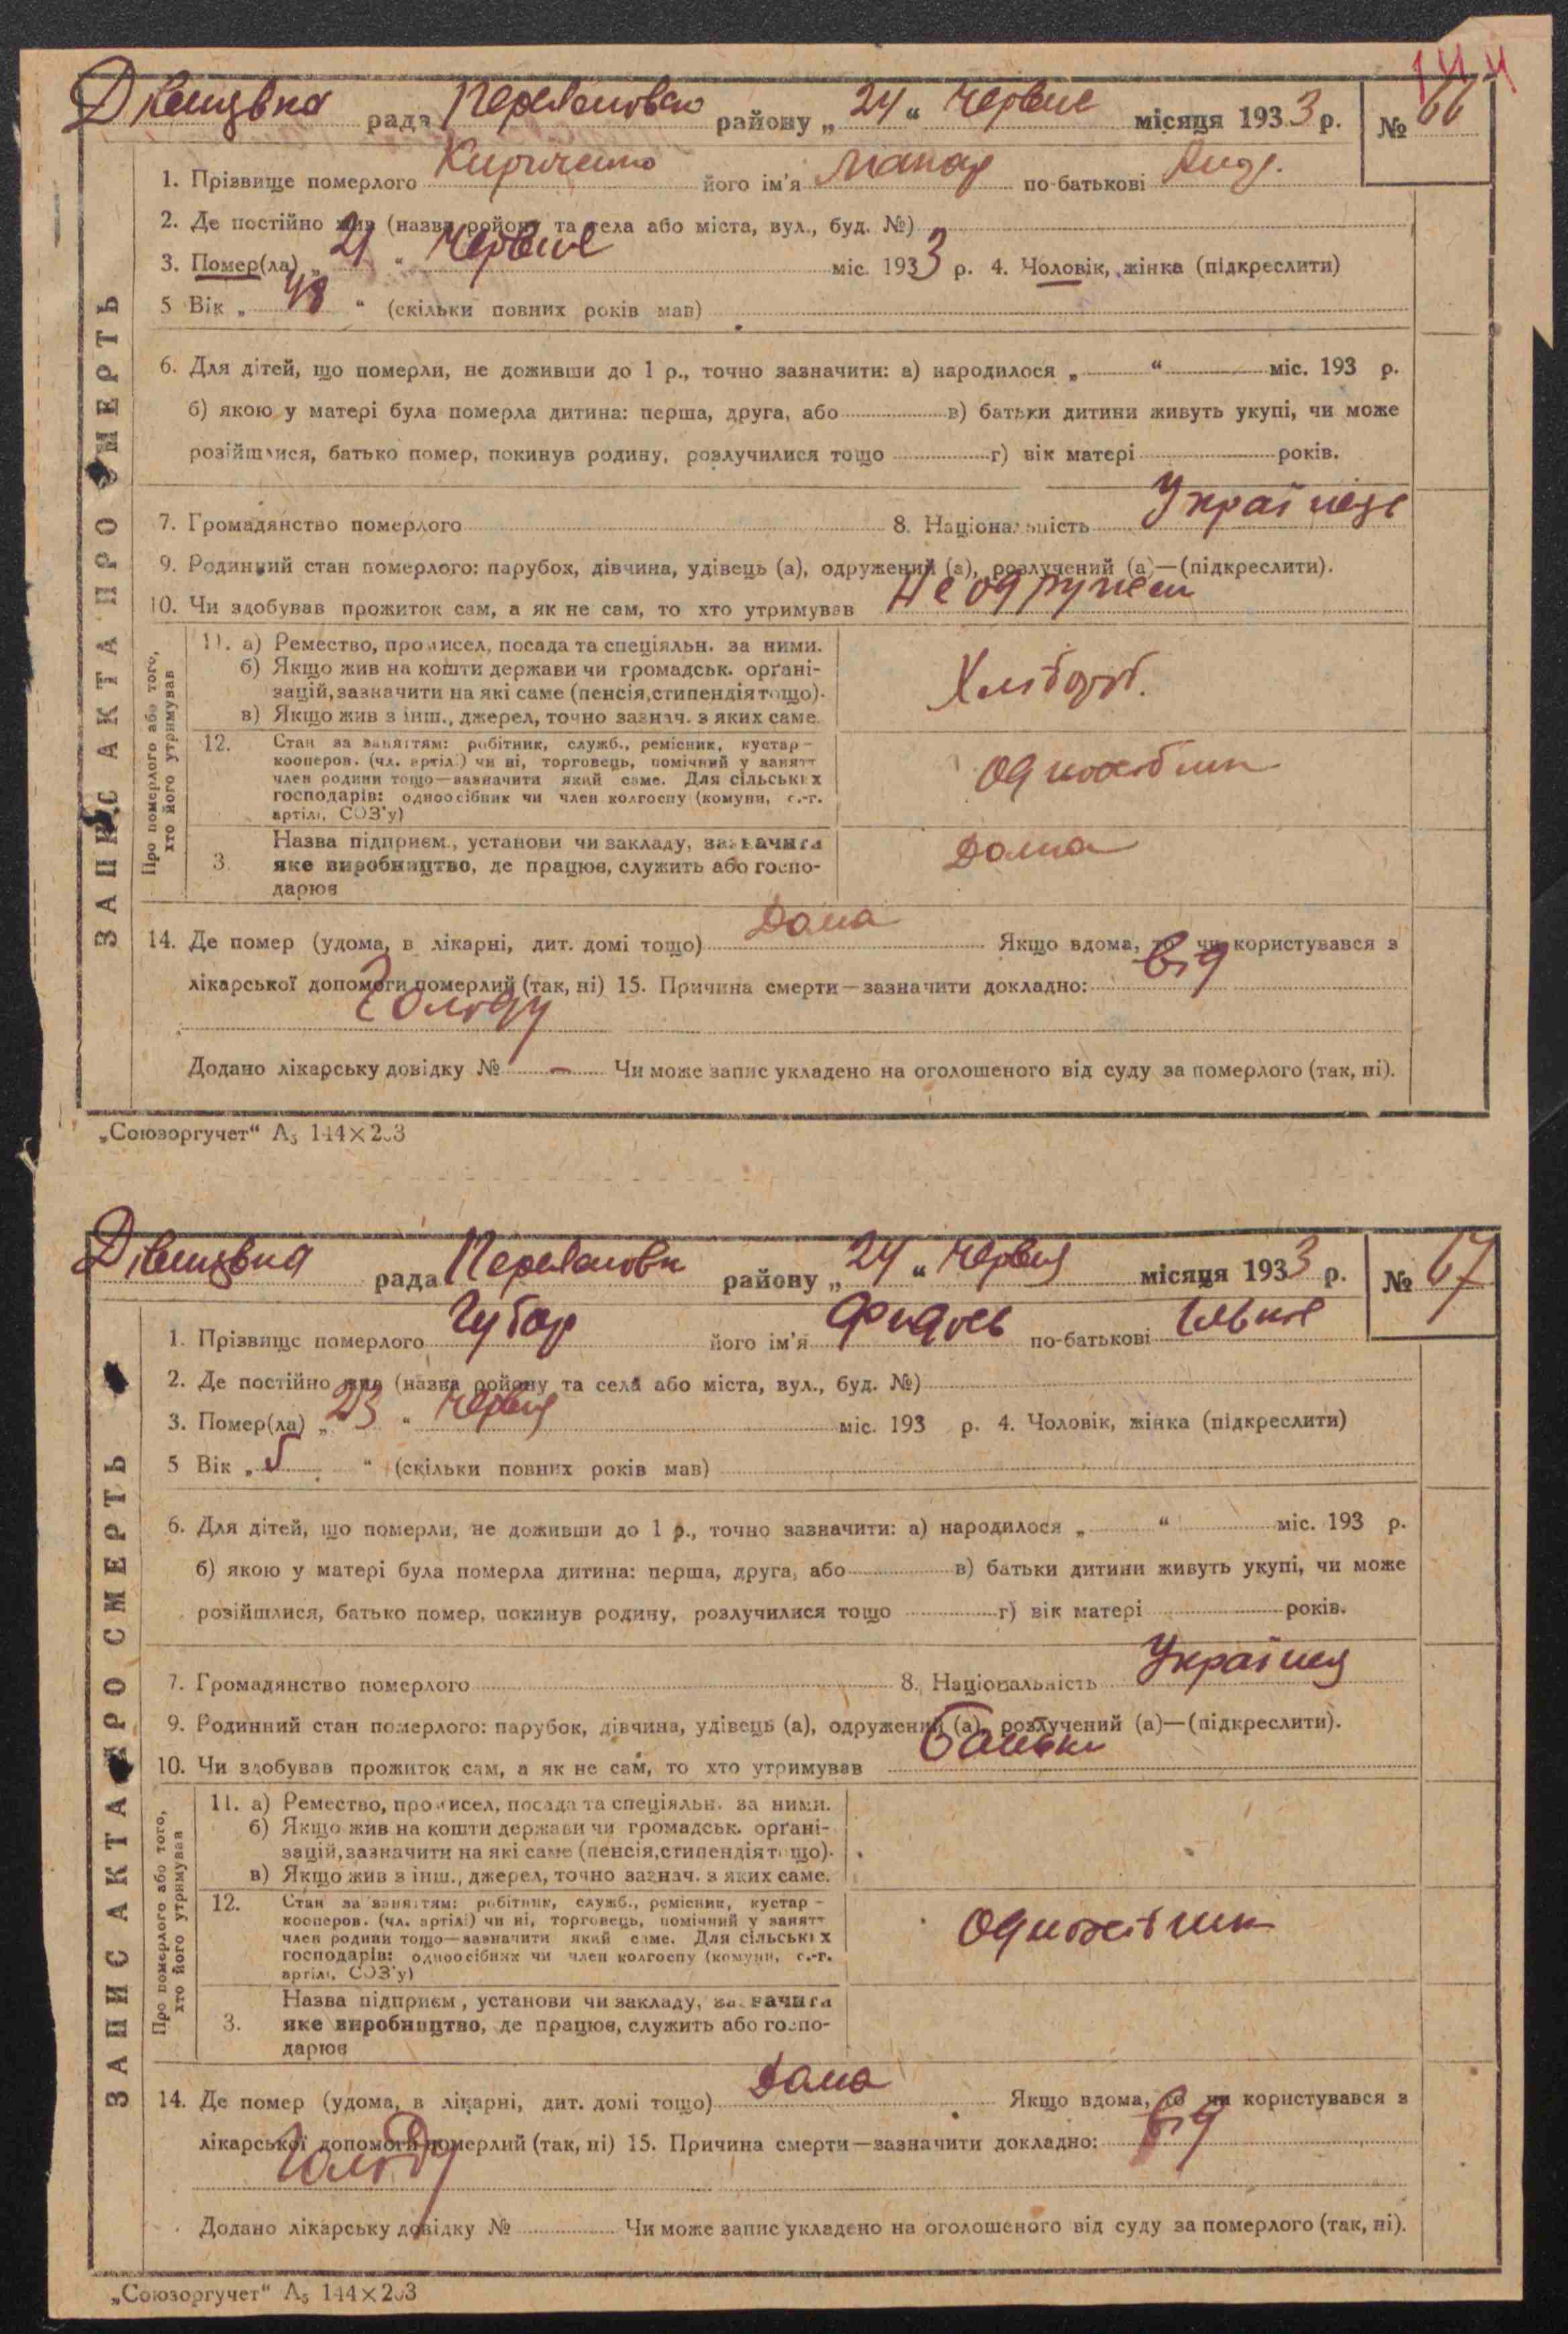 144
рада района „ 24 “ червня місяця 1933 р. № 66
1. Прізвище померлого Кириченко його ім'я Макар по-батькові Анд.
2. Де постійно жив (назва району та села або міста, вул., буд. №)
3. Помер(ла) „ 21 “ червня міс. 1933 р. 4. Чоловік, жінка (підкреслити)
5 Вік „ “ (скільки повних років мав)
6. Для дітей, що померли, не доживши до 1 р., точно зазначити: а) народилося „ “ міс. 193 р.
б) якою у матері була померла дитина: перша, друга, або в) батьки дитини живуть укупі, чи може
розійшлися, батько помер, покинув родину, розлучилися тощо г) вік матері років.
7. Громадянство померлого 8. Національність Українець
9. Родинний стан померлого: парубок, дівчина, удівець (а), одружений (а), розлучений (а)—(підкреслити).
10. Чи здобував прожиток сам, а як не сам, то хто утримував Не одружен
11. а) Ремество, промисел, посада та спеціяльн. за ними.
б) Якщо жив на кошти держави чи громадськ. орґані-
зацій, зазначити на які саме (пенсія, стипендія тощо).
в) Якщо жив з інш., джерел, точно зазнач. з яких саме.
Хлібороб.
12. Стан за заняттям: робітник, служб., ремісник, кустар-
кооперов. (чл. артілі) чи ні, торговець, помічний у занятт
член родини тощо—зазначити який саме. Для сільських
господарів: одноосібник чи член колгоспу (комуни, с.-г.
артілі, СОЗ'у)
Одноосібник
3. Назва підприєм., установи чи закладу, зазначити
яке виробництво, де працює, служить або госпо-
дарює
Дома
14. Де помер (удома, в лікарні, дит. домі тощо) Дома Якщо вдома, то чи користувався з
лікарської допомоги померлий (так, ні) 15. Причина смерти—зазначити докладно: від
Голоду
Додано лікарську довідку № – Чи може запис укладено на оголошеного від суду за померлого (так, ні).
ЗАПИС АКТА ПРО СМЕРТЬ
Про померлого або того,
хто його утримував
„Союзоргучет“ А5 144×203
рада району „ 24 “ червня місяця 1933 р. № 67
1. Прізвище померлого Губар його ім'я по-батькові
2. Де постійно жив (назва району та села або міста, вул., буд. №)
3. Помер(ла) „ 23 “ червня міс. 193 р. 4. Чоловік, жінка (підкреслити)
5 Вік „ 5 “ (скільки повних років мав)
6. Для дітей, що померли, не доживши до 1 р., точно зазначити: а) народилося „ “ міс. 193 р.
б) якою у матері була померла дитина: перша, друга, або в) батьки дитини живуть укупі, чи може
розійшлися, батько помер, покинув родину, розлучилися тощо г) вік матері років.
7. Громадянство померлого 8. Національність
9. Родинний стан померлого: парубок, дівчина, удівець (а), одружений (а), розлучений (а)—(підкреслити).
10. Чи здобував прожиток сам, а як не сам, то хто утримував батьки
11. а) Ремество, промисел, посада та спеціяльн. за ними.
б) Якщо жив на кошти держави чи громадськ. орґані-
зацій, зазначити на які саме (пенсія, стипендія тощо).
в) Якщо жив з інш., джерел, точно зазнач. з яких саме.
12. Стан за заняттям: робітник, служб., ремісник, кустар-
кооперов. (чл. артілі) чи ні, торговець, помічний у занятт
член родини тощо—зазначити який саме. Для сільських
господарів: одноосібник чи член колгоспу (комуни, с.-г.
артілі, СОЗ'у)
Одноосібник
3. Назва підприєм., установи чи закладу, зазначити
яке виробництво, де працює, служить або госпо-
дарює
14. Де помер (удома, в лікарні, дит. домі тощо) Дома Якщо вдома, то чи користувався з
лікарської допомоги померлий (так, ні) 15. Причина смерти—зазначити докладно: від
Голоду
Додано лікарську довідку № Чи може запис укладено на оголошеного від суду за померлого (так, ні).
ЗАПИС АКТА ПРО СМЕРТЬ
Про померлого або того,
хто його утримував
„Союзоргучет“ А5 144×203